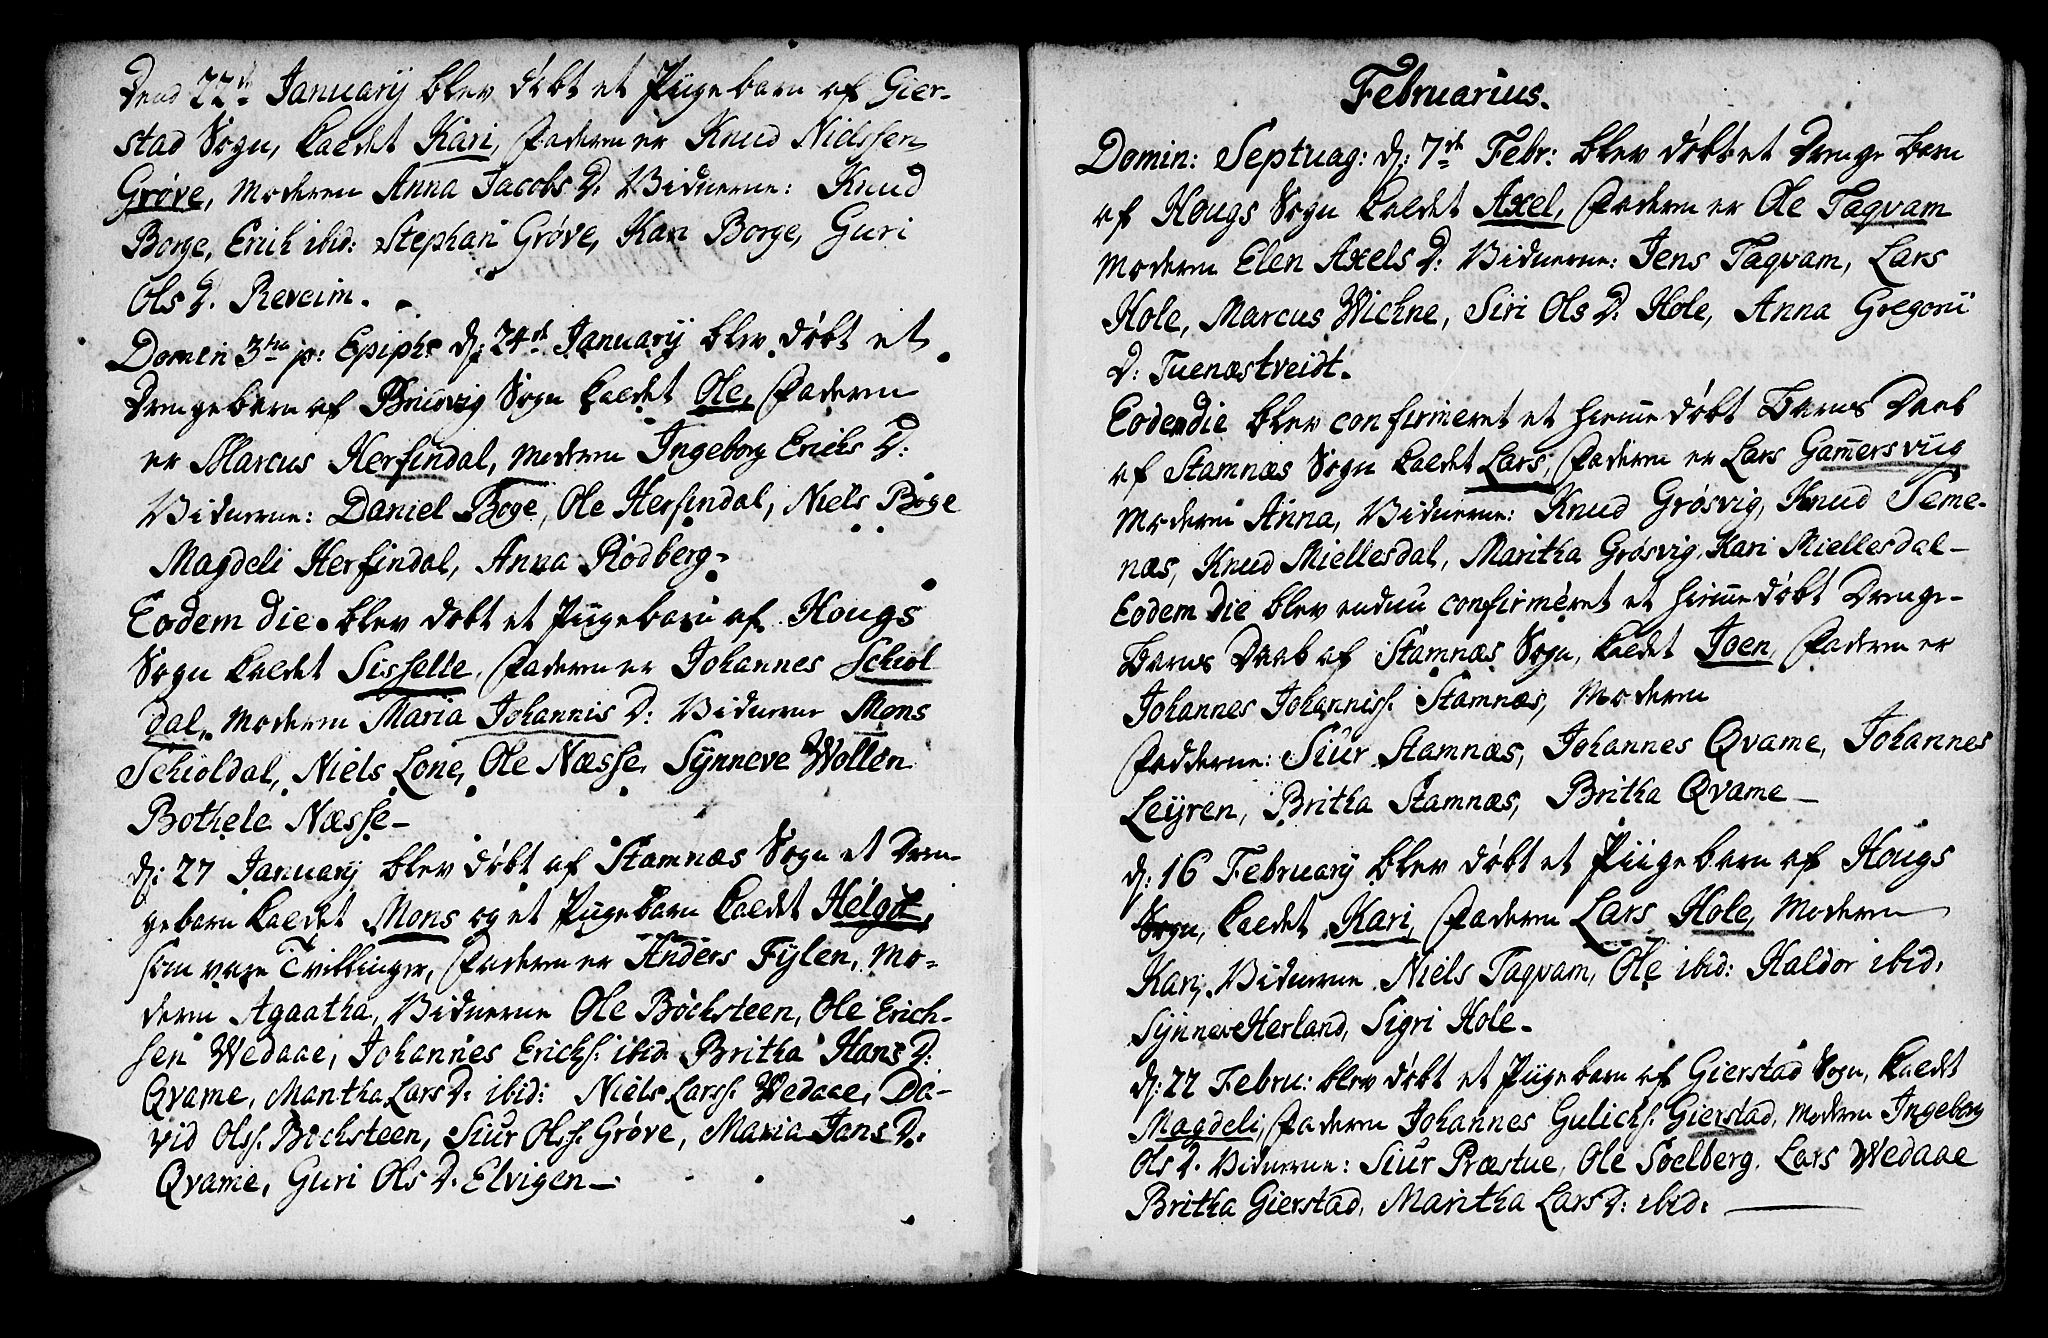 Dend 22de Januarij blev døbt et Piigebarn af Gier-
stad Sogn, kaldet Kari, Faderen er Knud Nielssen
Grøve, Moderen Anna Jacobs D. Vidnerne: Knud
Borge, Erich ibid: Stephan Grøve, Kari Borge, Guri
Ols D. Reveim.
Domin 3tia p: Epiph: d: 24de Januarij blev døbt et
Drengebarn af Bruvig Sogn kaldet Ole, Faderen
er Marcus Herfindal, Moderen Ingeborg Erichs D:
Vidnerne: Daniel Boge, Ole Herfindal, Niels Boge
Magdeli Herfindal, Anna Rødberg-
Eodem die blev døbt et Piigebarn af Hougs
Sogn kaldet Sisselle, Faderen er Johannes Schiol
dal, Moderen Maria Johannis D: Vidnerne Mons
Schioldal, Niels Lone, Ole Næsse, Synneve Wollen
Bothele Næsse-
d: 27 Januarij blev døbt af Stamnæs Sogn et Dren-
gebarn kaldet Mons og et Piigebarn kaldet Helgøt,
som vare Tvillinger, Faderen er Anders Fylen, Mo-
deren Agaatha, Vidnerne Ole Bochsteen, Ole Erich-
sen Wedaae, Johannes Erichs. ibid. Britha Hans D:
Qvame, Maritha Lars D: ibid: Niels Larss. Wedaae, Da-
vid Olss. Bochsteen, Siur Olss. Grøve, Maria Jans D:
Qvame, Guri Ols D. Elvigen-
Februarius.
Domin: Septuag: d: 7de Febr: blev døbt et Drenge barn
af Hougs Sogn kaldet Axel, Faderen er Ole Taqvam
Moderen Elen Axels D: Vidnerne: Jens Taqvam, Lars
Hole, Marcus Wichne, Siri Ols D: Hole, Anna Gregorii
D: Tuenæstveidt.
Eodem die blev confirmeret et hiemme døbt Barns Daab
af Stamnæs Sogn kaldet Lars, Faderen er Lars Gamersviig
Moderen Anna, Vidnerne: Knud Grøsvig, Knud Teme-
næs, Knud Miellesdal, Maritha Grøsvig, Kari Miellesdal-
Eodem Die blev endnu confirmeret et hiemme døbt Drenge-
Barns Daab af Stamnæs Sogn, kaldet Joen, Faderen er
Johannes Johanniss. Stamnæs, Moderen
Fadderne: Siur Stamnæs, Johannes Qvame, Johannes
Leyren, Britha Stamnæs, Britha Qvame-
d: 16 Februarij blev døbt et Piigebarn af Hougs
Sogn, kaldet Kari, Faderen Lars Hole, Moderen
Kari, Vidnerne Niels Taqvam, Ole ibid: Haldor ibid:
Synneve Herland, Sigri Hole-
d: 22 Febru: blev døbt et Piigebarn af Gierstad Sogn, kaldt
Magdeli, Faderen Johannes Gulichs. Gierstad, Moderen Ingeborg
Ols D. Vidnerne: Siur Præstue, Ole Soelberg, Lars Wedaae
Britha Gierstad, Maritha Lars D: ibid: